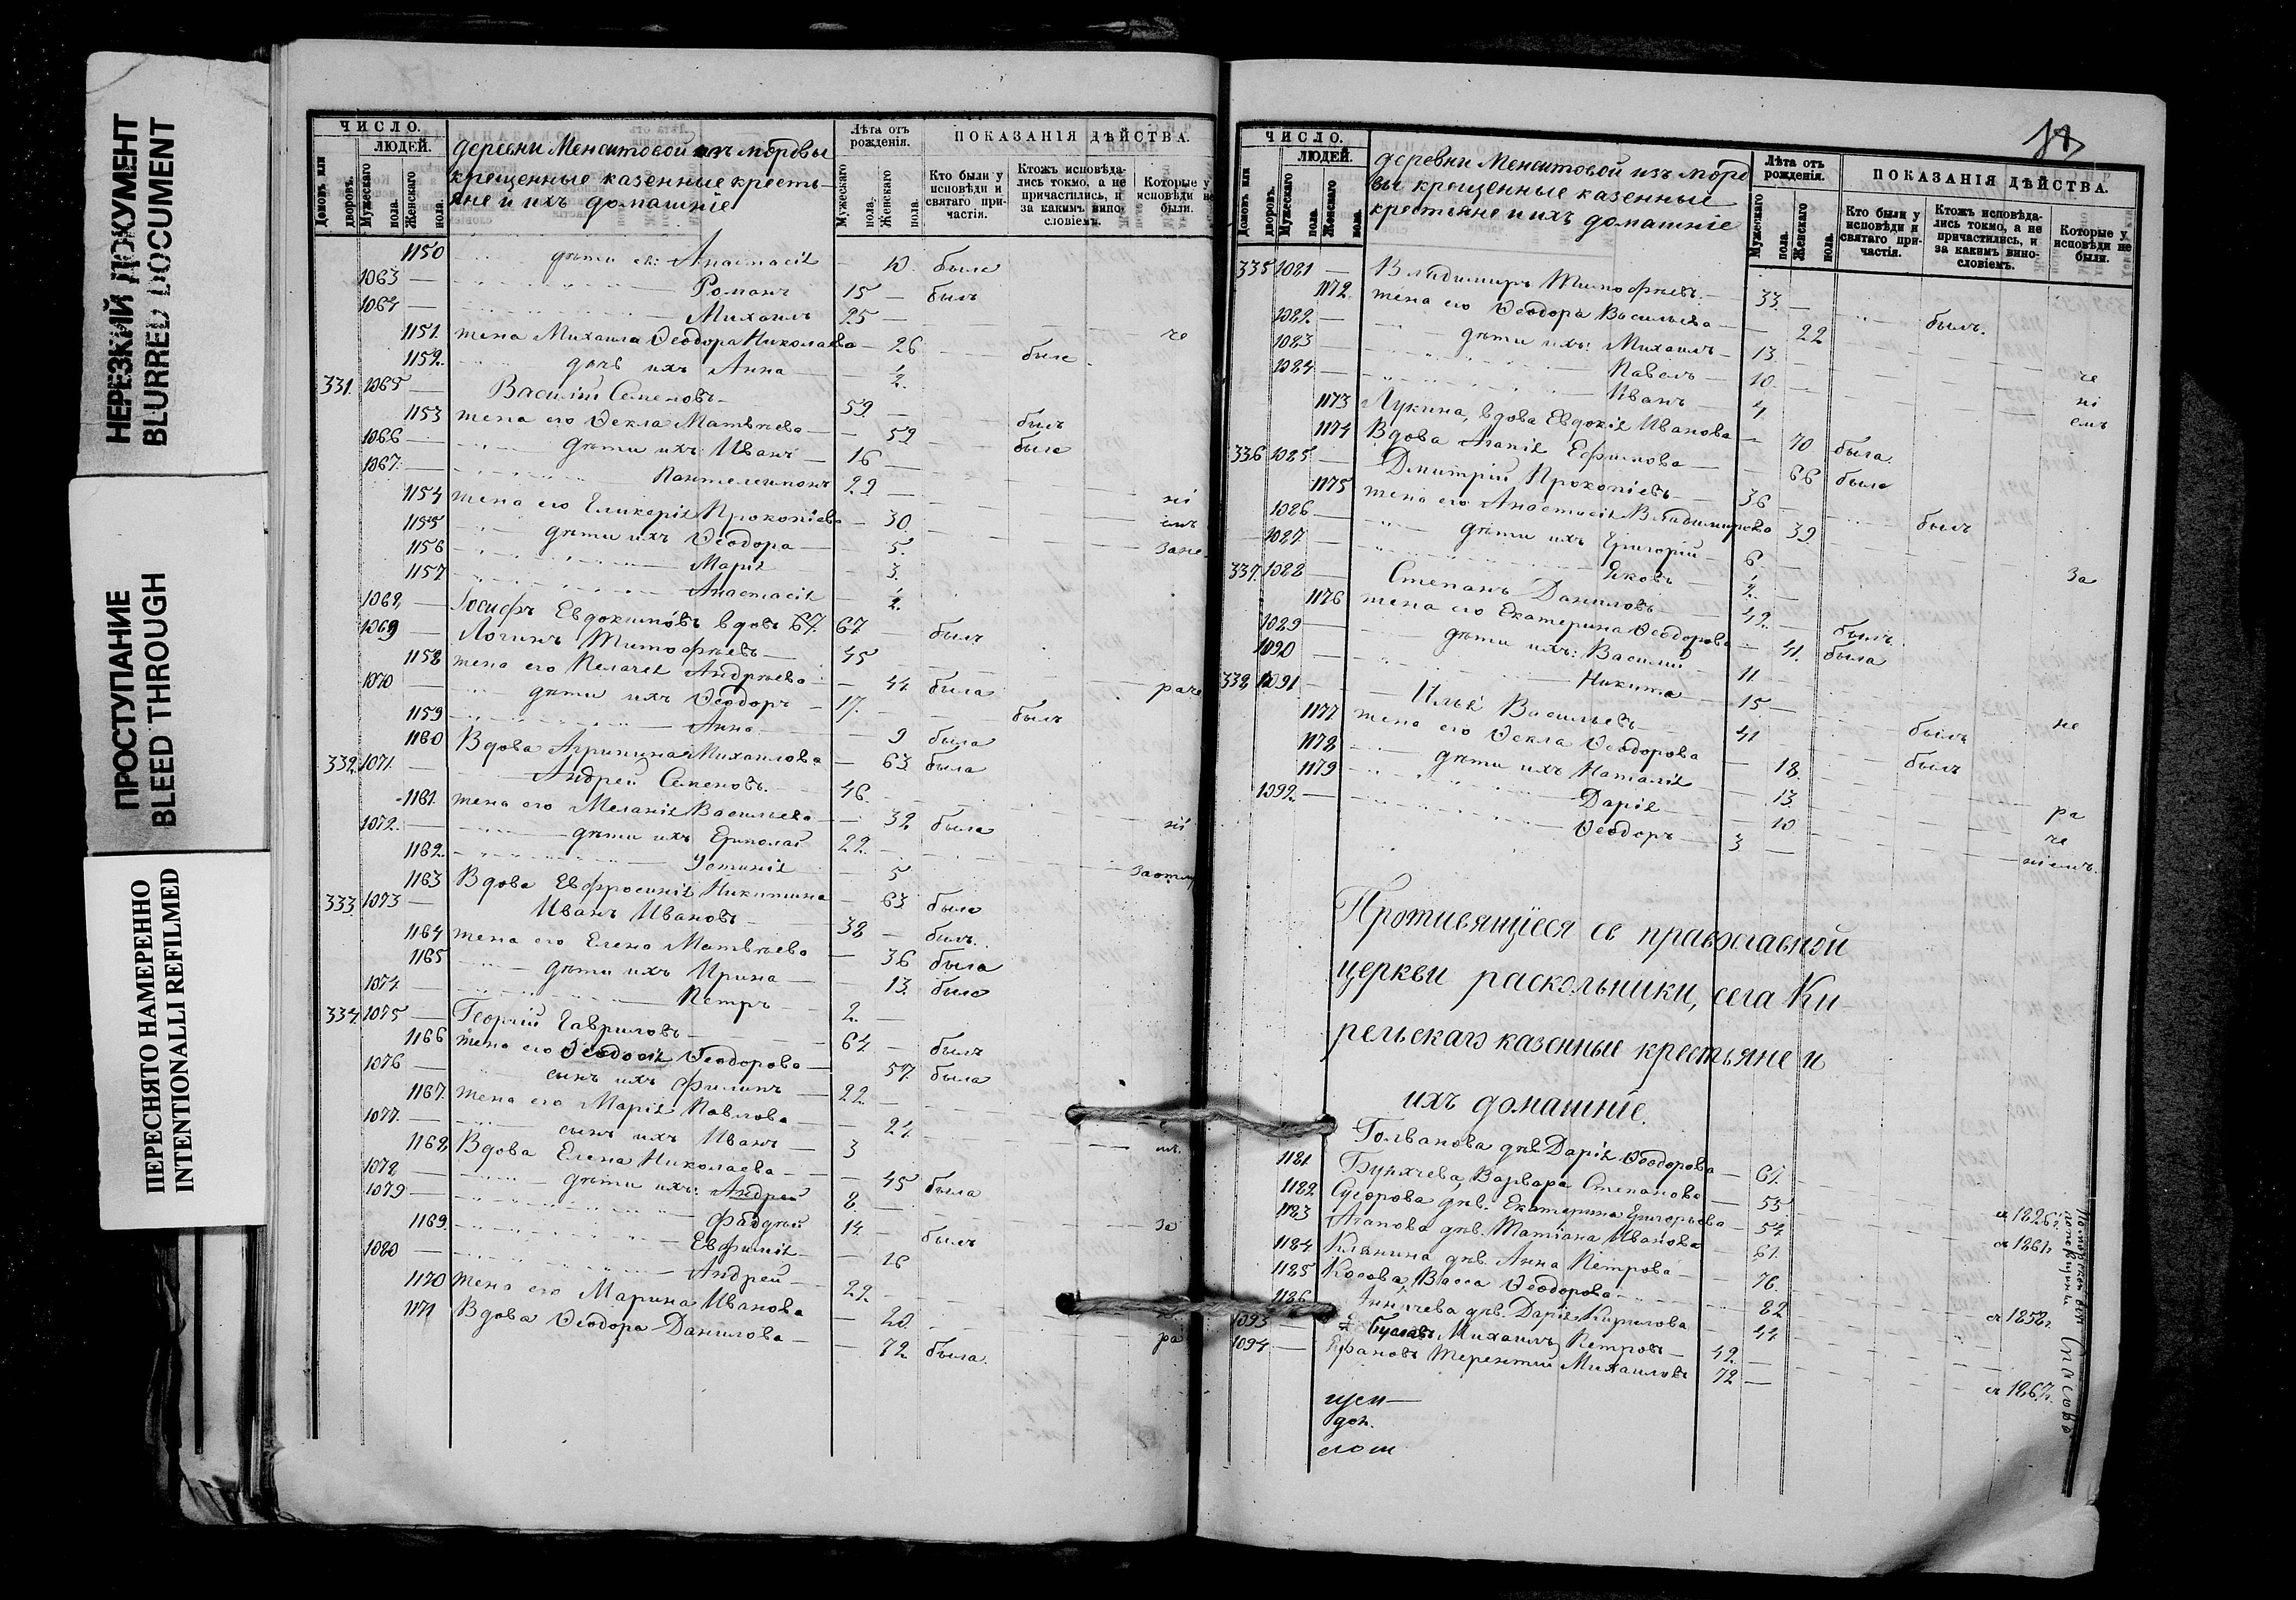 НЕРЕЗКИЙ ДОКУМЕНТ
BLURRED DOCUMENT
ПРОСТУПАНИЕ
BLEED THROUGH
ПЕРЕСНЯТО НАМЕРЕННО
INTENTIONALLI REFILMED
ЧИСЛО.
ЛЮДЕЙ.
Домовъ или дворовъ.
Мужескаго пола.
Женскаго пола.
деревни Менситовой изъ мордвы
крещенные казенные кресть-
яне и ихъ домашніе
Лѣта отъ рожденія.
Мужескаго пола.
Женскаго пола.
ПОКАЗАНІЯ ДѢЙСТВА.
Кто были у исповѣди и святаго при-частія.
Ктожъ исповѣда-лись токмо, а не причастились, и за какимъ вино-словіемъ.
Которые у исповѣди не были.
1150 дѣти ея: Анастасія — 10. была
1063 — Романъ 15 — былъ
1064 — Михаилъ 25 —
1151. жена Михаила Ѳеодора Николаева — 26 че
1152. дочь ихъ Анна — ½ была
331. 1065 — Василій Семеновъ — 59 —
1153 жена его Ѳекла Матвѣева — 59 былъ
1066 — дѣти ихъ: Иванъ — 16 — была
1067. — Пантелеимонъ 29 —
1154 жена его Гликерія Прокопіева — 30 ні
1155 дѣти ихъ Ѳеодора — 5. емъ
1156 Марія — 3.
1157 Анастасія — ½
1068 — Іосифъ Евдокимовъ вдовъ 67. 67
1069 — Логинъ Тимофѣевъ — 45 былъ
1158 жена его Пелагея Андрѣева — 44 была
1070 — дѣти ихъ Ѳеодоръ — 17. —
1159 Анна — 9 была былъ
1160 Вдова Агрипина Михаилова — 63 была
332. 1071. — Андрей Семеновъ. 46. —
1161. жена его Меланія Васильева — 32 была ні
1072. — дѣти ихъ Ермолай 22. —
1162. Устинія — 5
1163 Вдова Евфросинія Никитина — 63 была
333. 1073 — Иванъ Ивановъ — 38 — былъ.
1164 жена его Елена Матвѣева — 36 была
1165 дѣти ихъ Ирина — 13. была
1074 — Петръ 2. —
334. 1075 — Георгій Гавриловъ — 64 — былъ
1166 жена его Ѳеодосія Ѳеодорова — 57. была
1076 — сынъ ихъ Филипъ — 22. —
1167. жена его Марія Павлова — 24.
1077. — сынъ ихъ Иванъ — 3
1168 Вдова Елена Николаева — 45 была
1078 — дѣти ихъ: Андрей 8. —
1079 — Фаддѣй 14. — былъ за
1169. Евфимія — 16
1080 — Андрей — 22. —
1170 жена его Марина Иванова — 20.
1171 Вдова Ѳеодора Данилова — 72 была. ра
ЧИСЛО.
ЛЮДЕЙ.
Домовъ или дворовъ.
Мужескаго пола.
Женскаго пола.
деревни Менситовой изъ морд
вы крещенные казенные
крестьяне и ихъ домашніе
Лѣта отъ рожденія.
Мужескаго пола.
Женскаго пола.
ПОКАЗАНІЯ ДѢЙСТВА.
Кто были у исповѣди и святаго при-частія.
Ктожъ исповѣда-лись токмо, а не причастились, и за какимъ вино-словіемъ.
Которые у исповѣди не были.
335 1081 — Владимиръ Тимофѣевъ. — 33. —
1172. жена его Ѳеодора Васильева — 22 былъ.
1082. — дѣти ихъ: Михаилъ — 13.
1083 — Павелъ — 10. — че
1084 — Иванъ — 4 ні
1173 Лукина, вдова Евдокія Иванова — 70 была. емъ
1174 Вдова Агапія Ефимова — 66 была
336 1085 — Дмитрій Прокопіевъ — 36 —
1175 жена его Анастасія Владимирова 39. былъ
1086 — дѣти ихъ Григорій — 6. —
1087. — Яковъ — ½ — за
337. 1088 — Степанъ Даниловъ — 42. — былъ
1176 жена его Екатерина Ѳеодорова — 41. была
1089 — дѣти ихъ: Василій 11 —
1090 — Никита — 15. — не
338. 1091 — Илья Васильевъ 41 былъ
1177 жена его Ѳекла Ѳеодорова — 18. былъ
1178 дѣти ихъ Наталія — 13. ра
1179 Дарія — 10 че
1092. — Ѳеодоръ 3 — ніемъ.
Противящіеся св православной
церкви раскольники, села Ки
рельскаго казенные крестьяне и
ихъ домашніе.
Голванова дѣв. Дарія Ѳеодорова — 67.
1181. Бунячева, Варвара Степанова — 55
1182. Сугорова дѣв. Екатерина Григорьева — 54 съ 1826 г.
1183 Агапова дѣв. Татіана Иванова — 61. съ 1861 г.
1184. Клянина дѣв. Анна Петрова — 76.
1185 Косова, Васса Ѳеодорова — 82
1186 дѣв. Дарія Кирилова — 44 съ 1858 г.
1093 Михаилъ Петровъ — 42. —
1094 — Терентій Михаиловъ 72 — съ 1867 г.